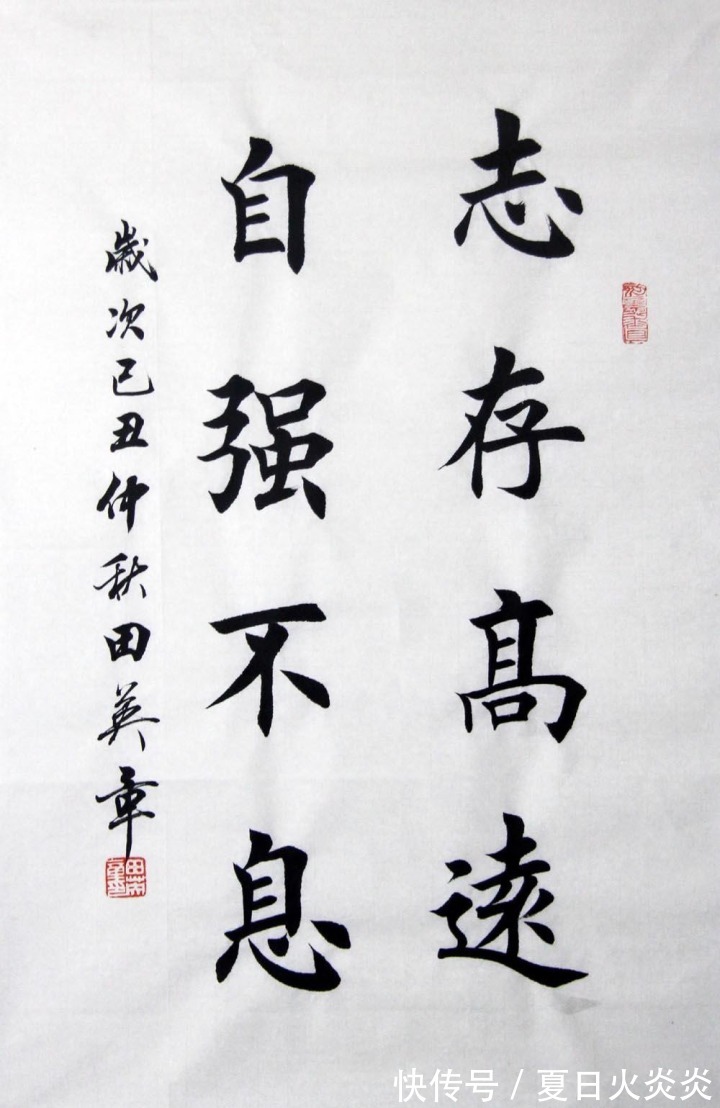 志存髙遠
自强不息
歲次己丑仲秋田英章
田英章印
快传号/夏日火炎炎